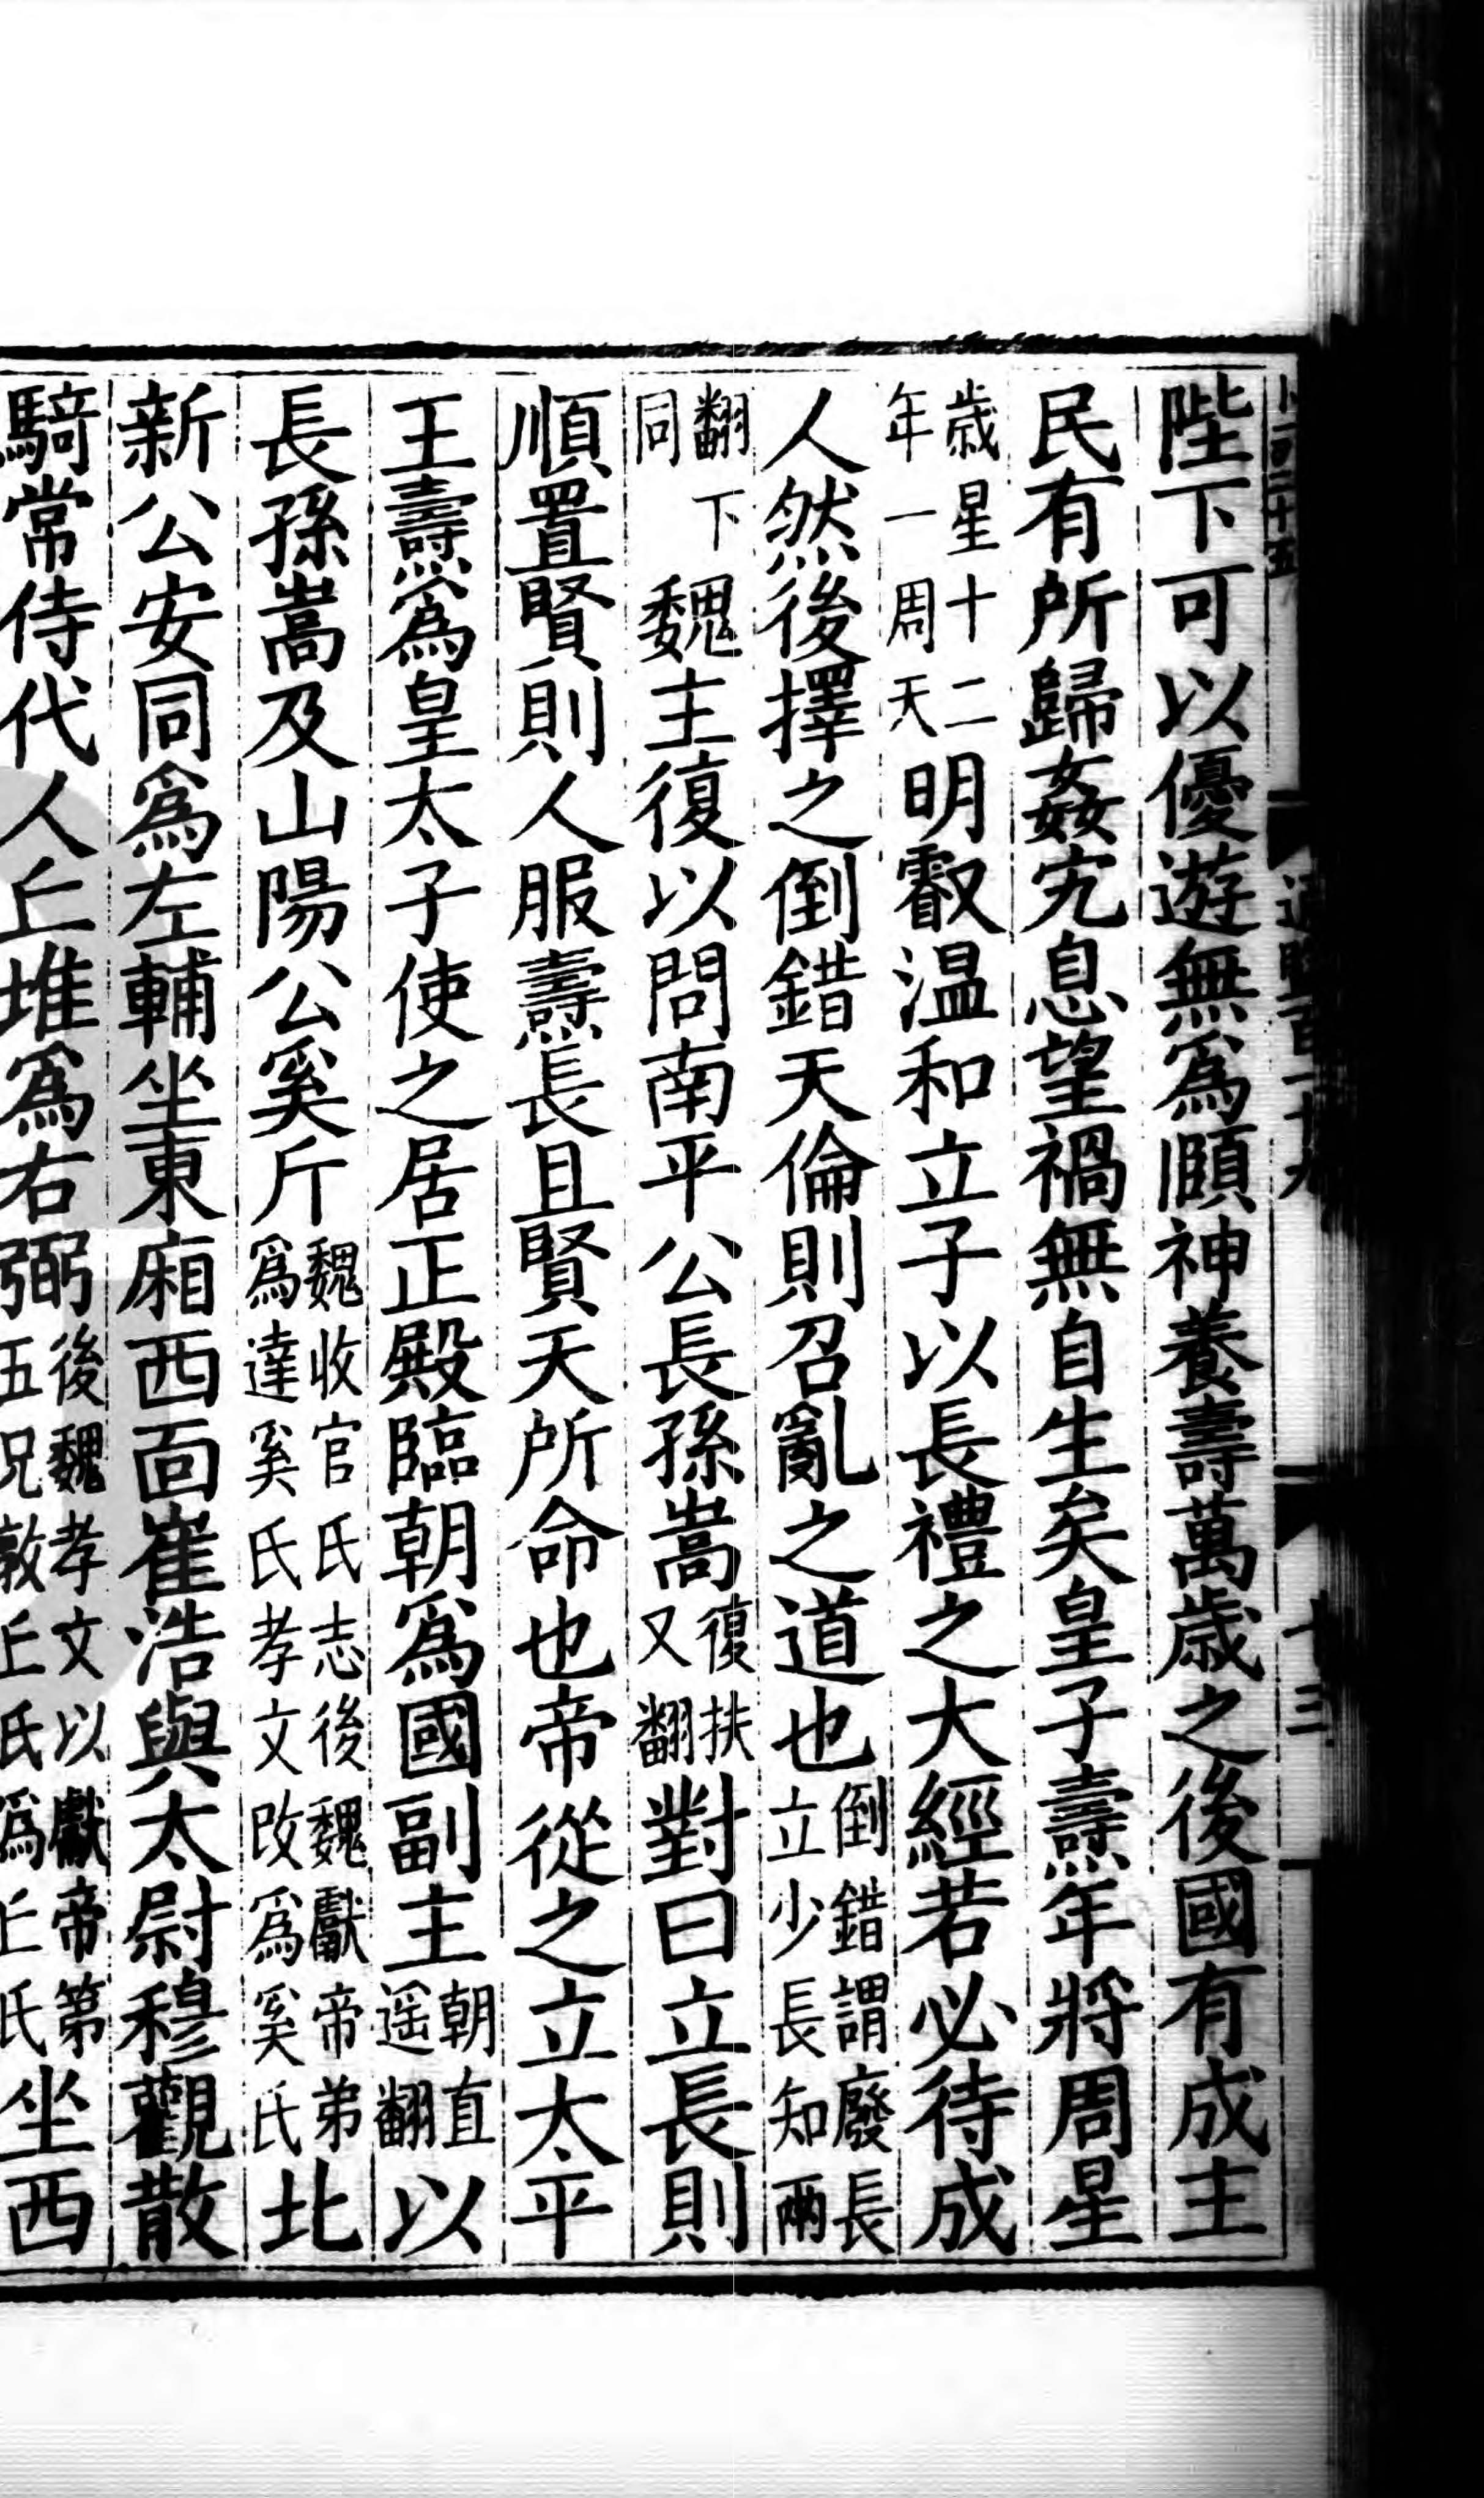 陛下可以優遊無爲頤神養壽萬歲之後國有成主
民有所歸姦宄息望禍無自生矣皇子燾年將周星
歲星十二年一周天明叡温和立子以長禮之大經若必待成
人然後擇之倒錯天倫則召亂之道也倒錯謂廢長立少長知兩
翻下同魏主復以問南平公長孫嵩復扶又翻對曰立長則
順置賢則人服燾長且賢天所命也帝從之立太平
王燾爲皇太子使之居正殿臨朝爲國副主朝直遥翻以
長孫嵩及山陽公奚斤魏收官氏志後魏獻帝弟爲達奚氏孝文改爲奚氏北
新公安同爲左輔坐東廂西面崔浩與太尉穆觀散
騎常侍代人丘堆爲右弼後魏孝文以獻帝第五兄敦丘氏爲丘氏坐西